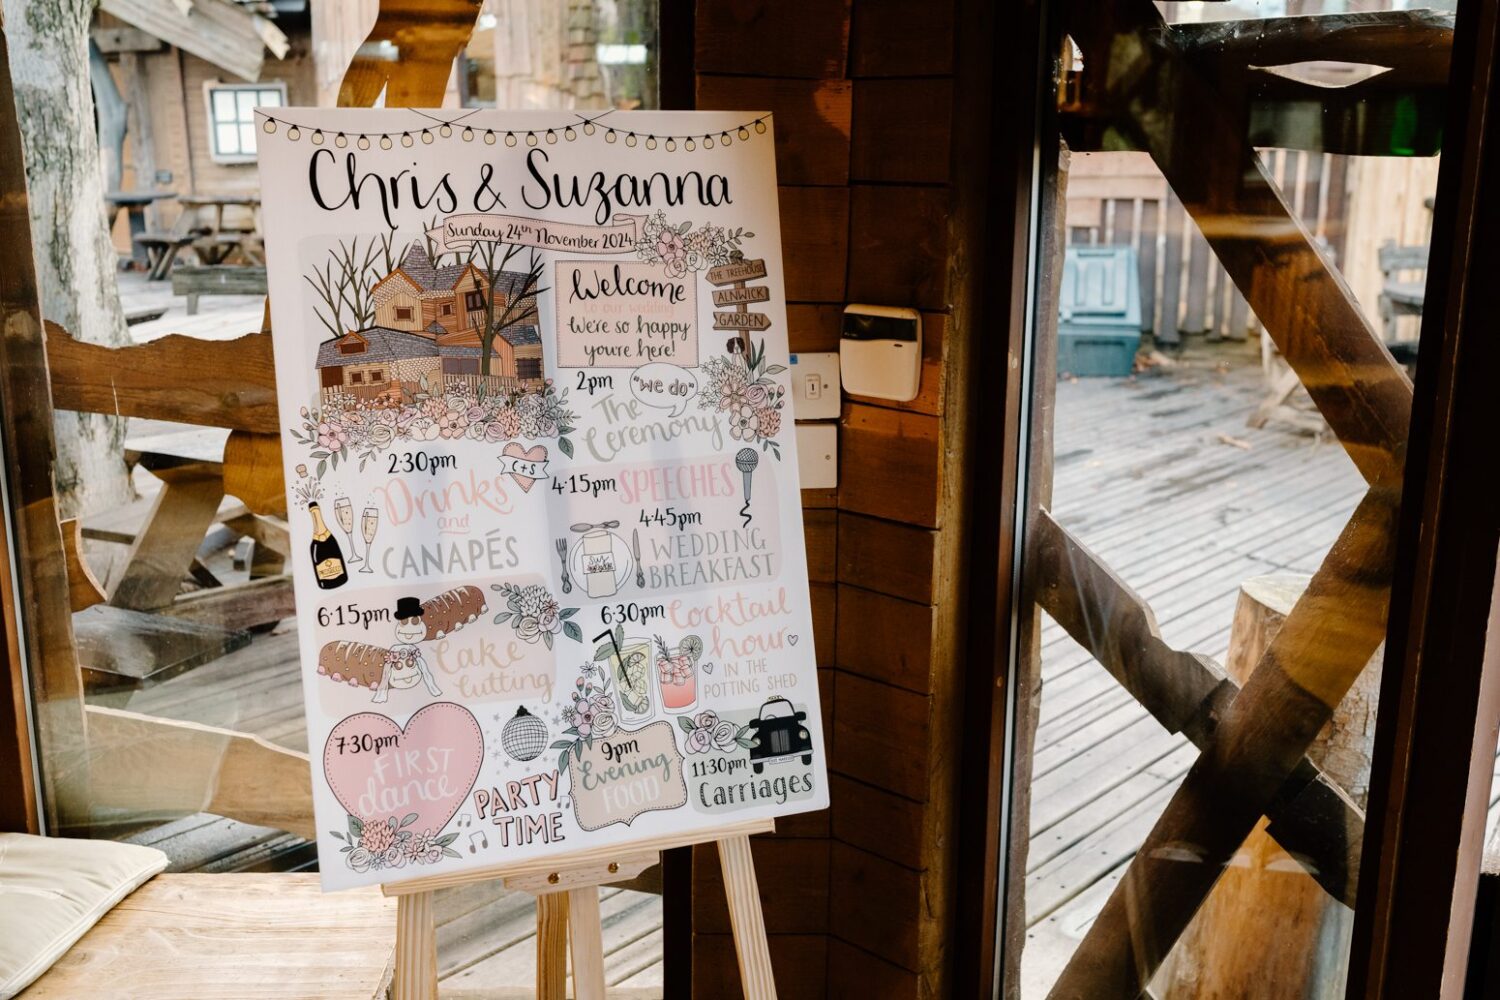 Chris & Suzanna
Sunday 24th November 2024
Welcome
to our wedding
We're so happy
you're here!
THE TREEHOUSE
ALNWICK
GARDEN
2pm
"we do"
The
Ceremony
2:30pm
C+S
Drinks
and
CANAPÉS
4:15pm SPEECHES
4:45pm
WEDDING
BREAKFAST
6:15pm
Cake
Cutting
6:30pm Cocktail
hour
IN THE
POTTING SHED
7:30pm
FIRST
dance
PARTY
TIME
9pm
Evening
FOOD
11:30pm
Carriages